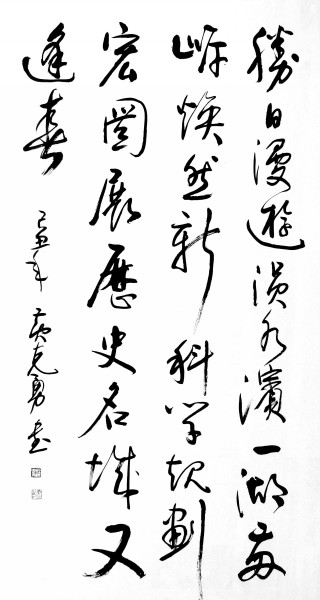 勝日漫遊涢水濱一湖兩
岸煥然新科学規劃
宏圖展歷史名城又
逢春
己丑年黄克勇書